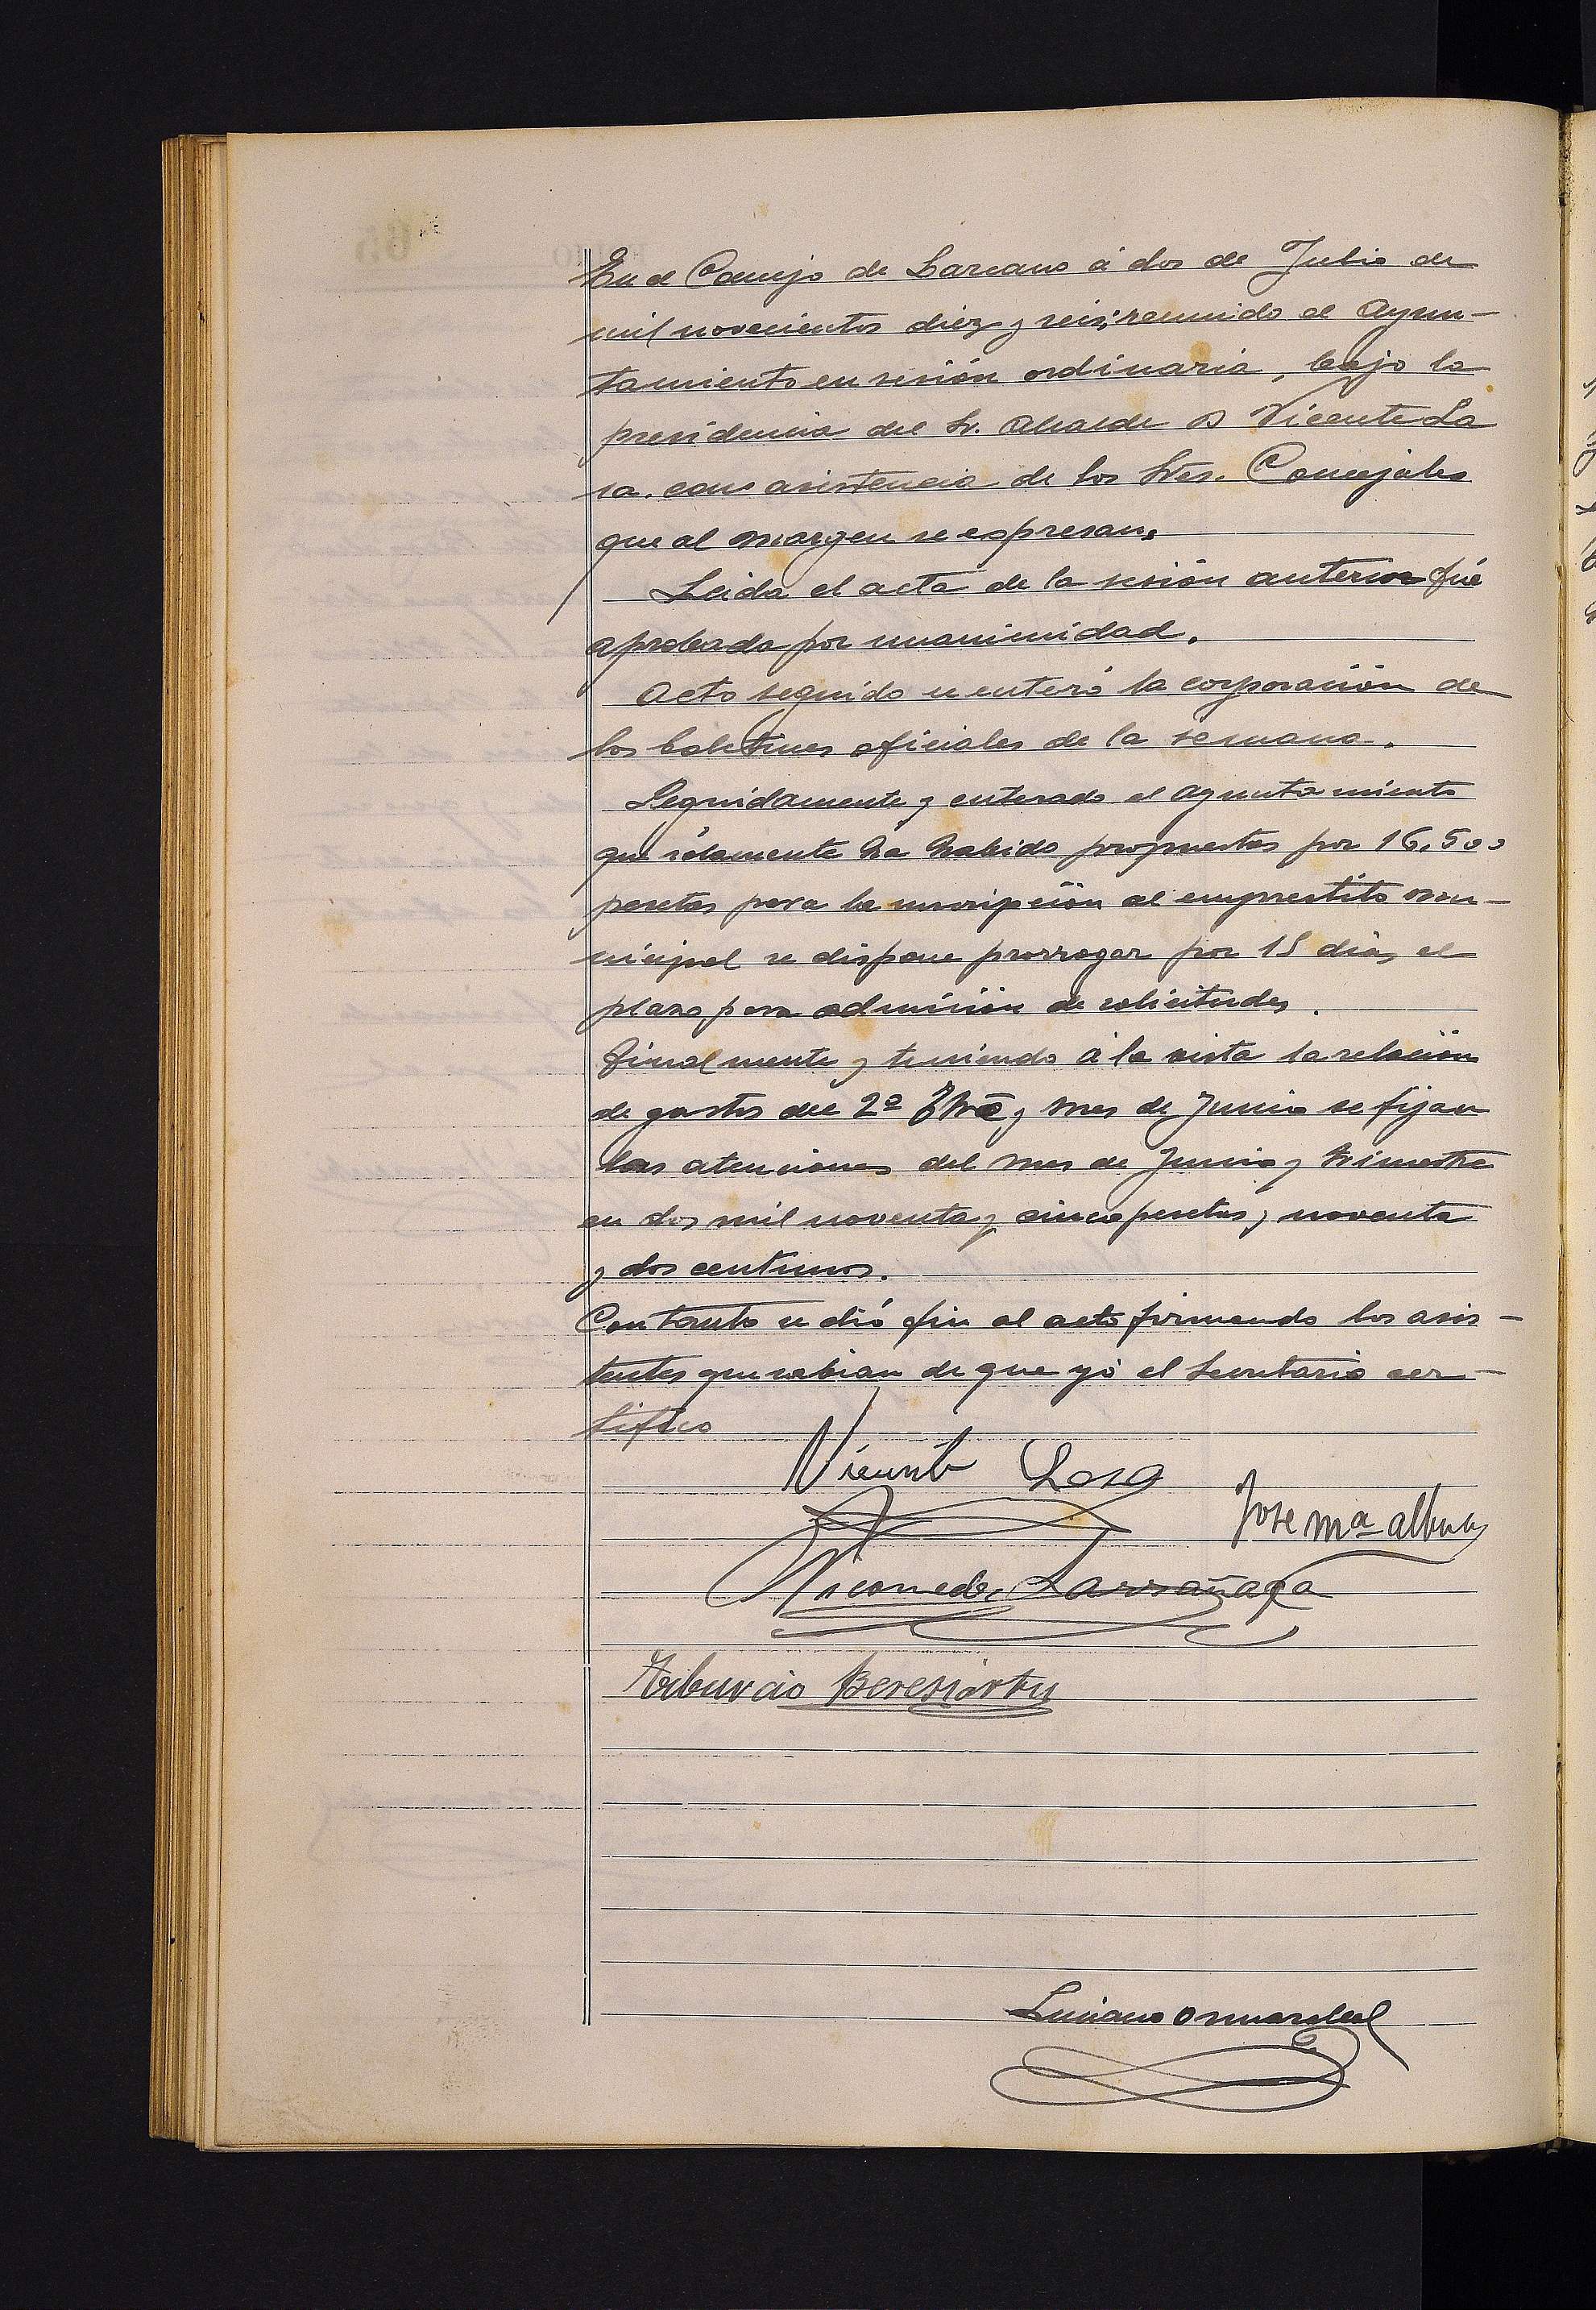 En el Concejo de Lazcano á dos de Julio de
mil novecientos diez y seis; reunido el Ayun-
tamiento en sesión ordinaria, bajo la
presidencia del Sr. Alcalde D Vicente La
sa. con asistencia de los Sres. Concejales
que al margen se expresan.
Leida el acta de la sesión anterior fué
aprobada por unanimidad.
Acto seguido se enteró la corporación de
los boletines oficiales de la semana.
Seguidamente y enterado el Ayuntamiento
que sólamente há habido propuestas por 16.500
pesetas para la suscripción al emprestito mu-
nicipal se dispone prorrogar por 15 dias el
plazo para admisión de solicitudes.
Finalmente y teniendo á la vista la relación
de gastos del 2º Tre y mes de Junio se fijan
las atenciones del mes de Junio y trimestre
en dos mil noventa y cinco pesetas y noventa
y dos centimos.
Con tanto se dió fin al acto firmando los asis-
tentes que sabian de que yó el Secretario cer-
tifico
Vicente Lasa
Jose Mª
Nicomedes Larrañaga
Tiburcio Beresiartu
Luciano